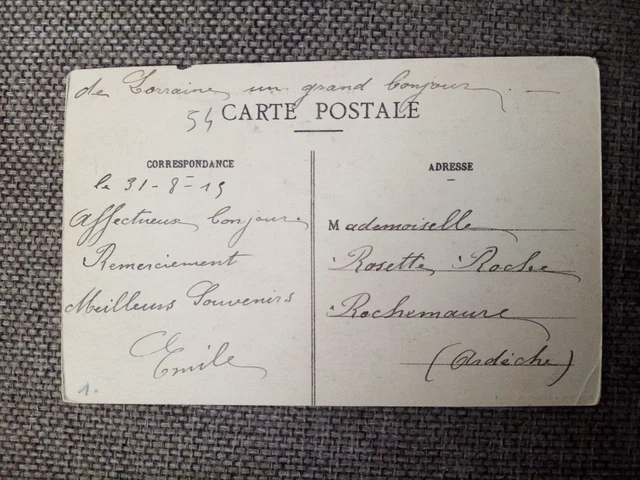 de Lorraine un grand bonjour. —
54
CARTE POSTALE
CORRESPONDANCE
le 31-8-15
Affectueux bonjour
Remerciement
Meilleurs Souvenirs
Emile
1.
ADRESSE
Mademoiselle
Rosette Roche
Rochemaure
(Ardèche)